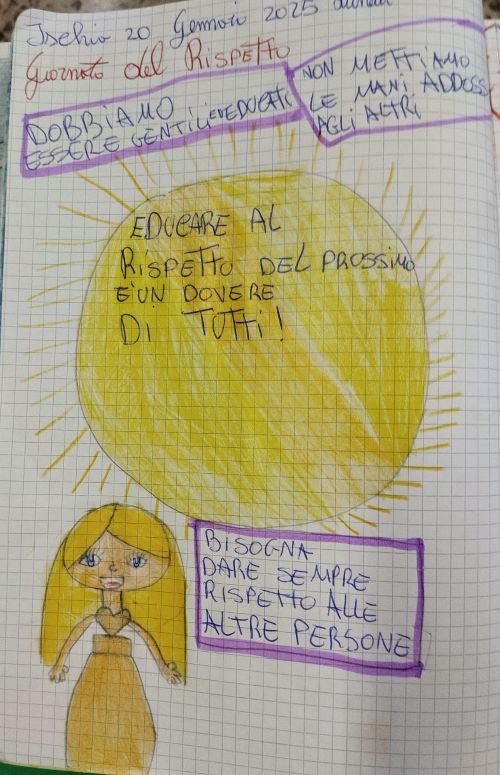 Ischia 20 Gennaio 2025 lunedì
Giornata del Rispetto
DOBBIAMO
ESSERE GENTILI ED EDUCATI
NON METTIAMO
LE MANI ADDOSSO
AGLI ALTRI
EDUCARE AL
RISPETTO DEL PROSSIMO
E' UN DOVERE
DI TUTTI!
BISOGNA
DARE SEMPRE
RISPETTO ALLE
ALTRE PERSONE